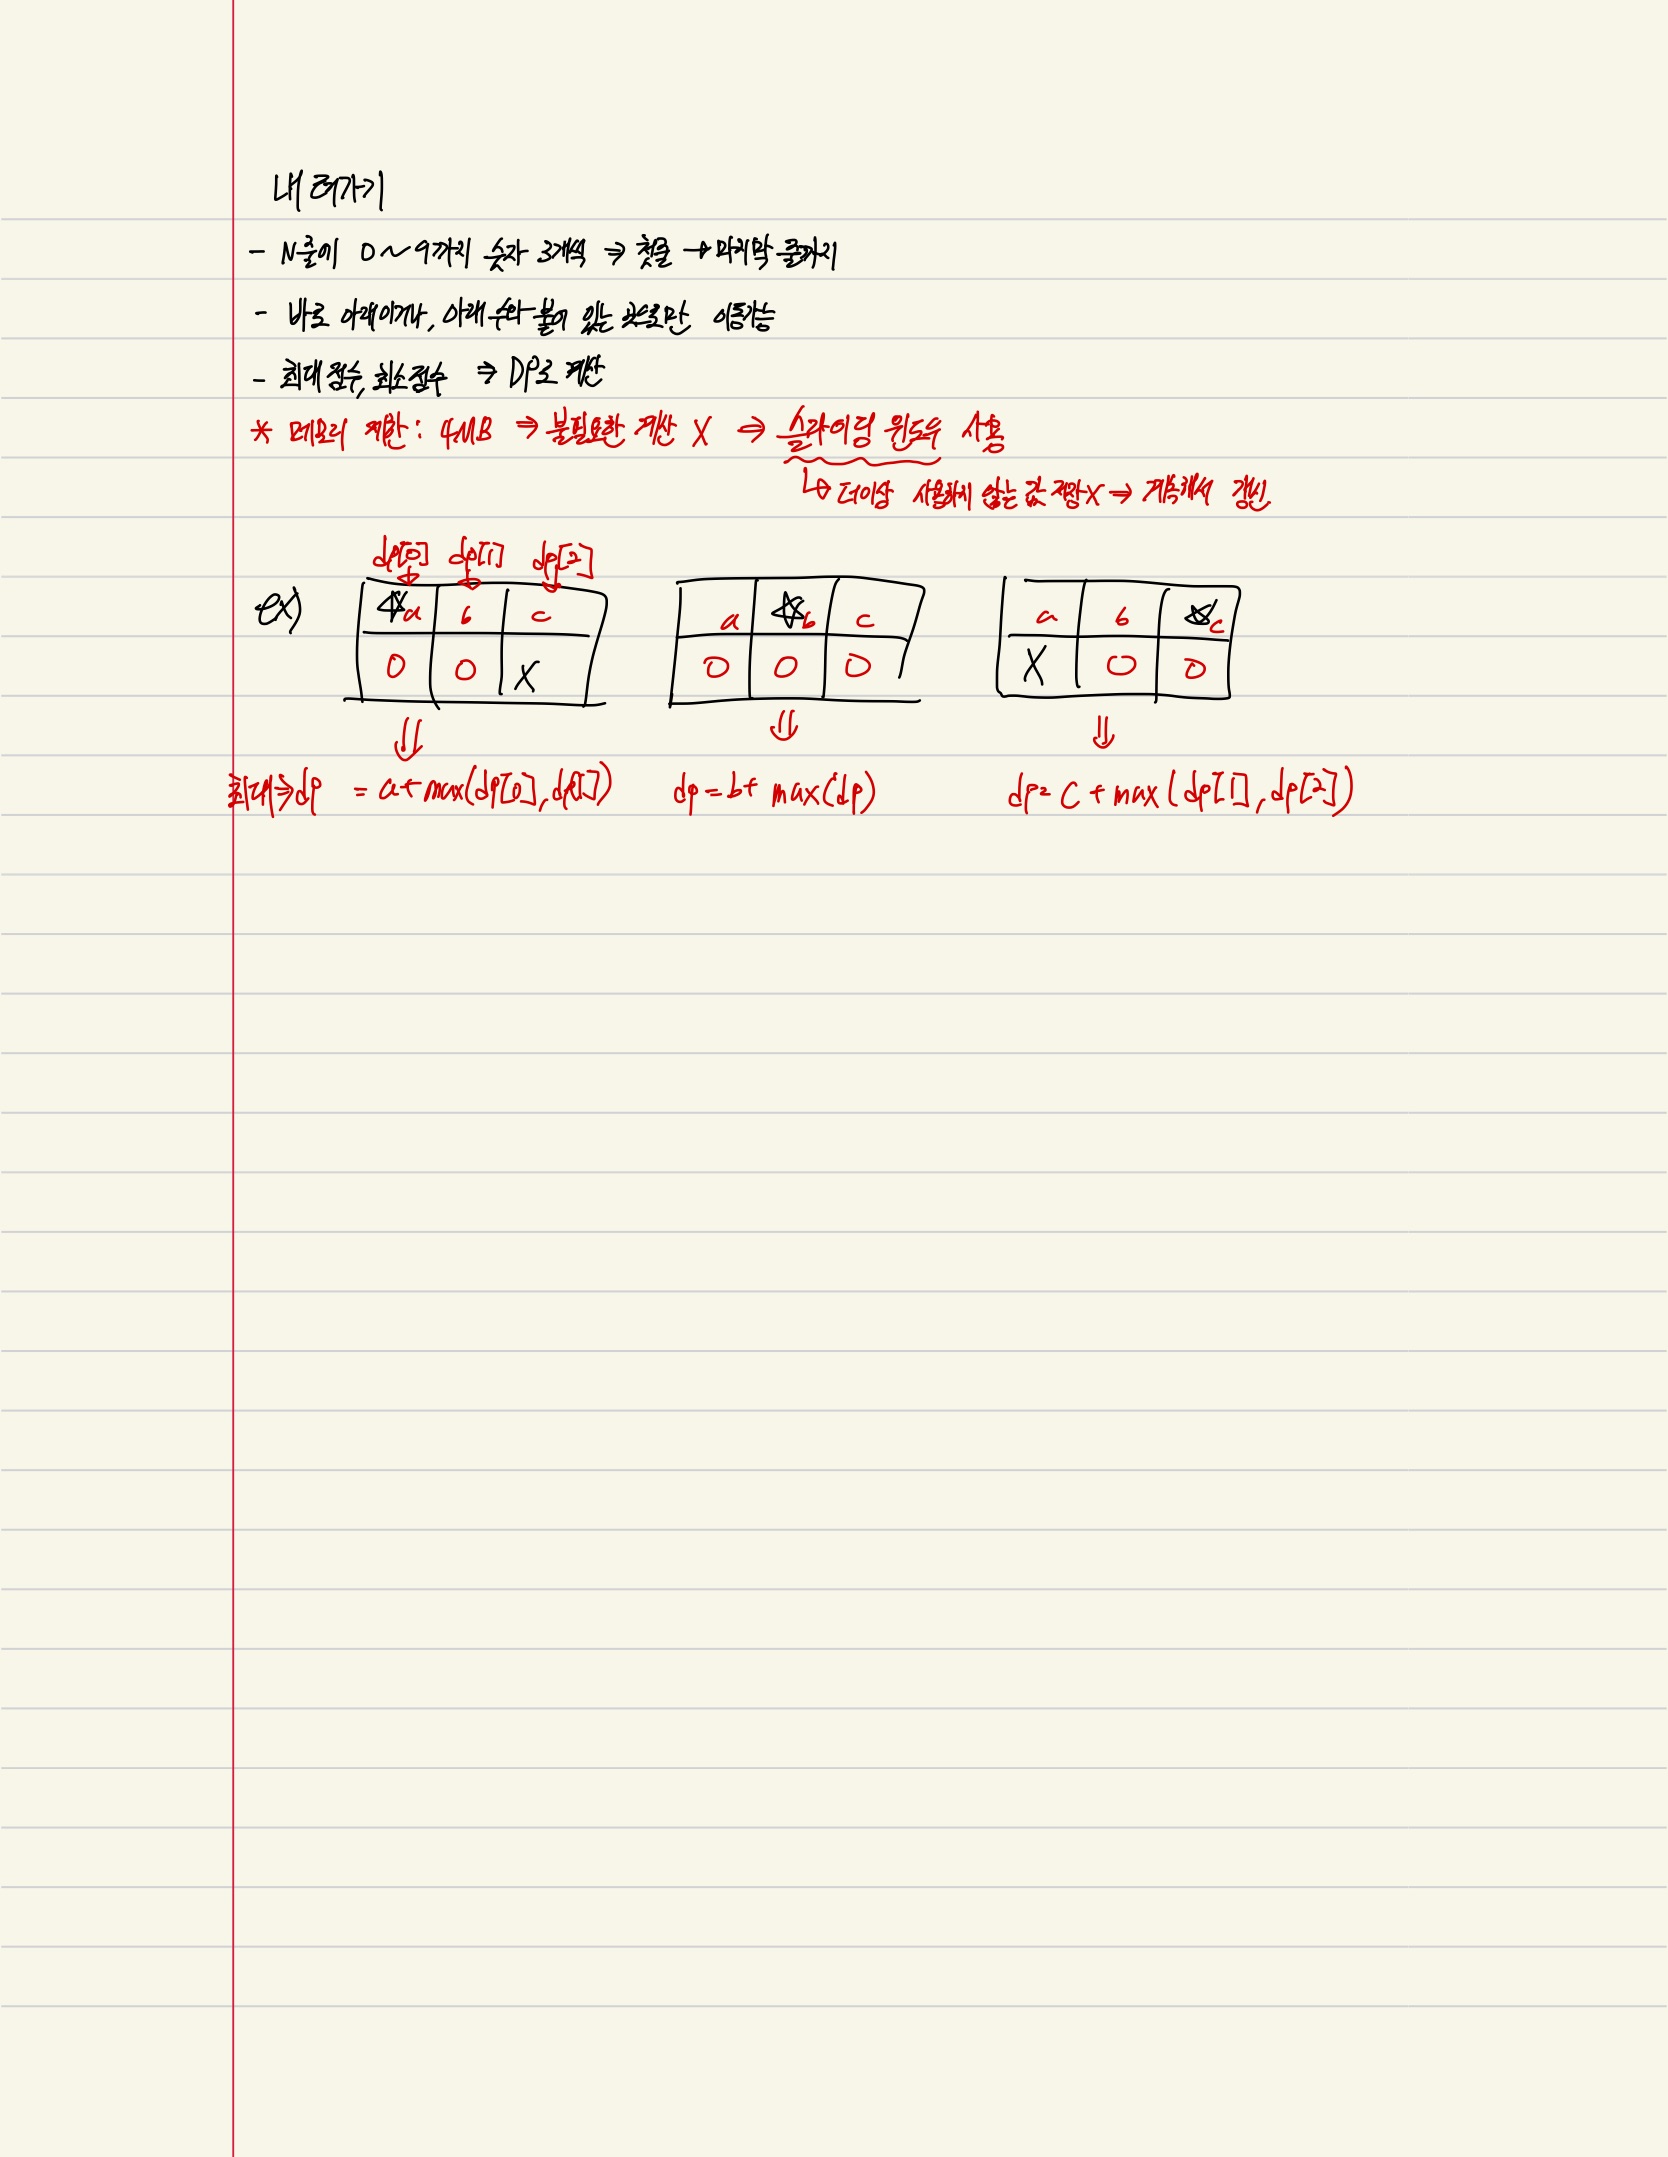 내려가기
- N줄에 0~9까지 숫자 3개씩 ⇒ 첫줄 → 마지막 줄까지
- 바로 아래이거나, 아래 수와 붙어 있는 곳으로만 이동가능
- 최대 점수, 최소 점수 ⇒ DP로 계산
* 메모리 제한 : 4MB ⇒ 불필요한 계산 X ⇒ 슬라이딩 윈도우 사용
↳ 더이상 사용하지 않는 값 저장X ⇒ 계속해서 갱신
dp[0] dp[1] dp[2]
ex) ☆a b c ☆b a c a b ☆c
O O X O O O X O O
최대⇒dp = a+max(dp[0],dp[1]) dp=b+ max(dp) dp= c+max(dp[1],dp[2])